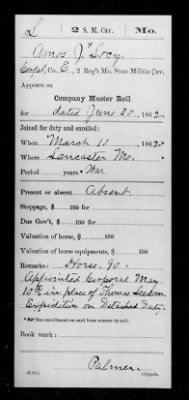 L 2 S. M. Cav. Mo.
Amos J. Locy
Corpl, Co. E, 2 Reg't Mo. State Militia Cav.
Appears on
Company Muster Roll
for dated June 20, 1862.
Joined for duty and enrolled:
When March 10, 1862.
Where Lancaster Mo.
Period years War.
Present or absent Absent
Stoppage, $ 100 for
Due Gov't, $ 100 for
Valuation of horse, $ 100
Valuation of horse equipments, $ 100
Remarks: Horse. 90.
Appointed Corporal May
10th in place of Thomas
Expedition on Detached Duty.
* See enrollment on card from muster-in roll.
Book mark:
Palmer
Copyist.